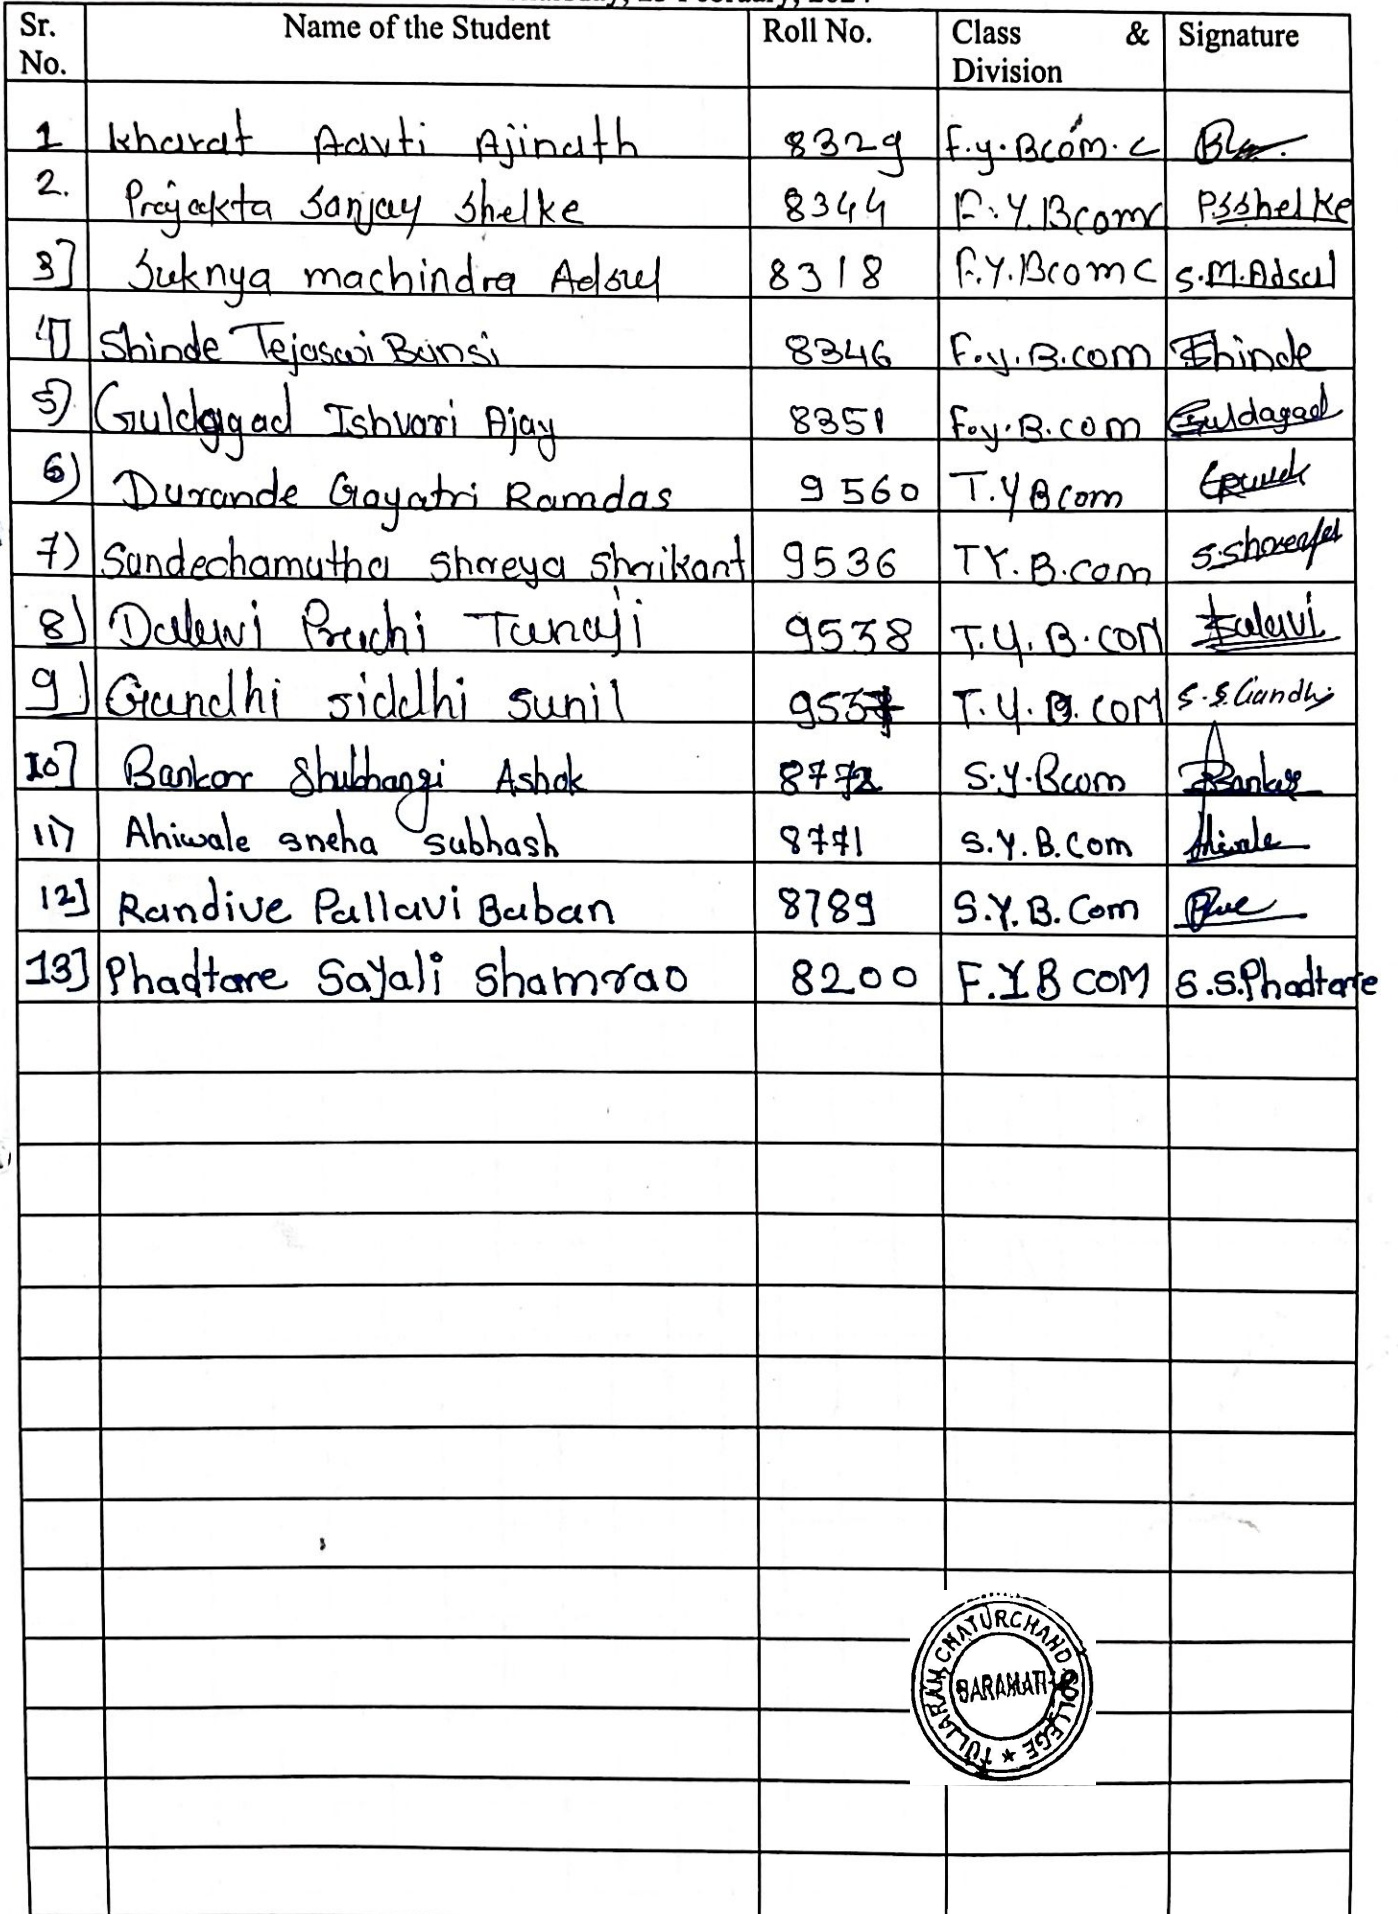 Sr. No. Name of the Student Roll No. Class & Division Signature
1 Kharat Aarti Ajinath 8329 F.y.Bcom.C
2. Prajakta Sanjay Shelke 8344 F.Y.Bcom C PSShelke
3] Suknya machindra Adsul 8318 F.Y.Bcom C S.M.Adsul
4] Shinde Tejaswi Bansi 8346 F.y.B.com Shinde
5) Guldagad Ishvari Ajay 8351 F.y.B.com Guldagad
6) Durande Gayatri Ramdas 9560 T.Y Bcom
7) Sandechamutha Shreya Shrikant 9536 TY.B.com
8) Dalawi Prachi Tanaji 9538 T.Y.B.COM Dalawi
9) Gandhi siddhi sunil 9537 T.Y.B.COM S.S.Gandhi
10] Bankar Shubhangi Ashok 8772 S.Y.Bcom Bankar
11) Ahiwale sneha subhash 8771 S.Y.B.Com Ahiwale
12] Randive Pallavi Baban 8789 S.Y.B.Com
13] Phadtare Sayali Shamrao 8200 F.Y B COM S.S.Phadtare
TULJARAM CHATURCHAND COLLEGE ★
BARAMATI